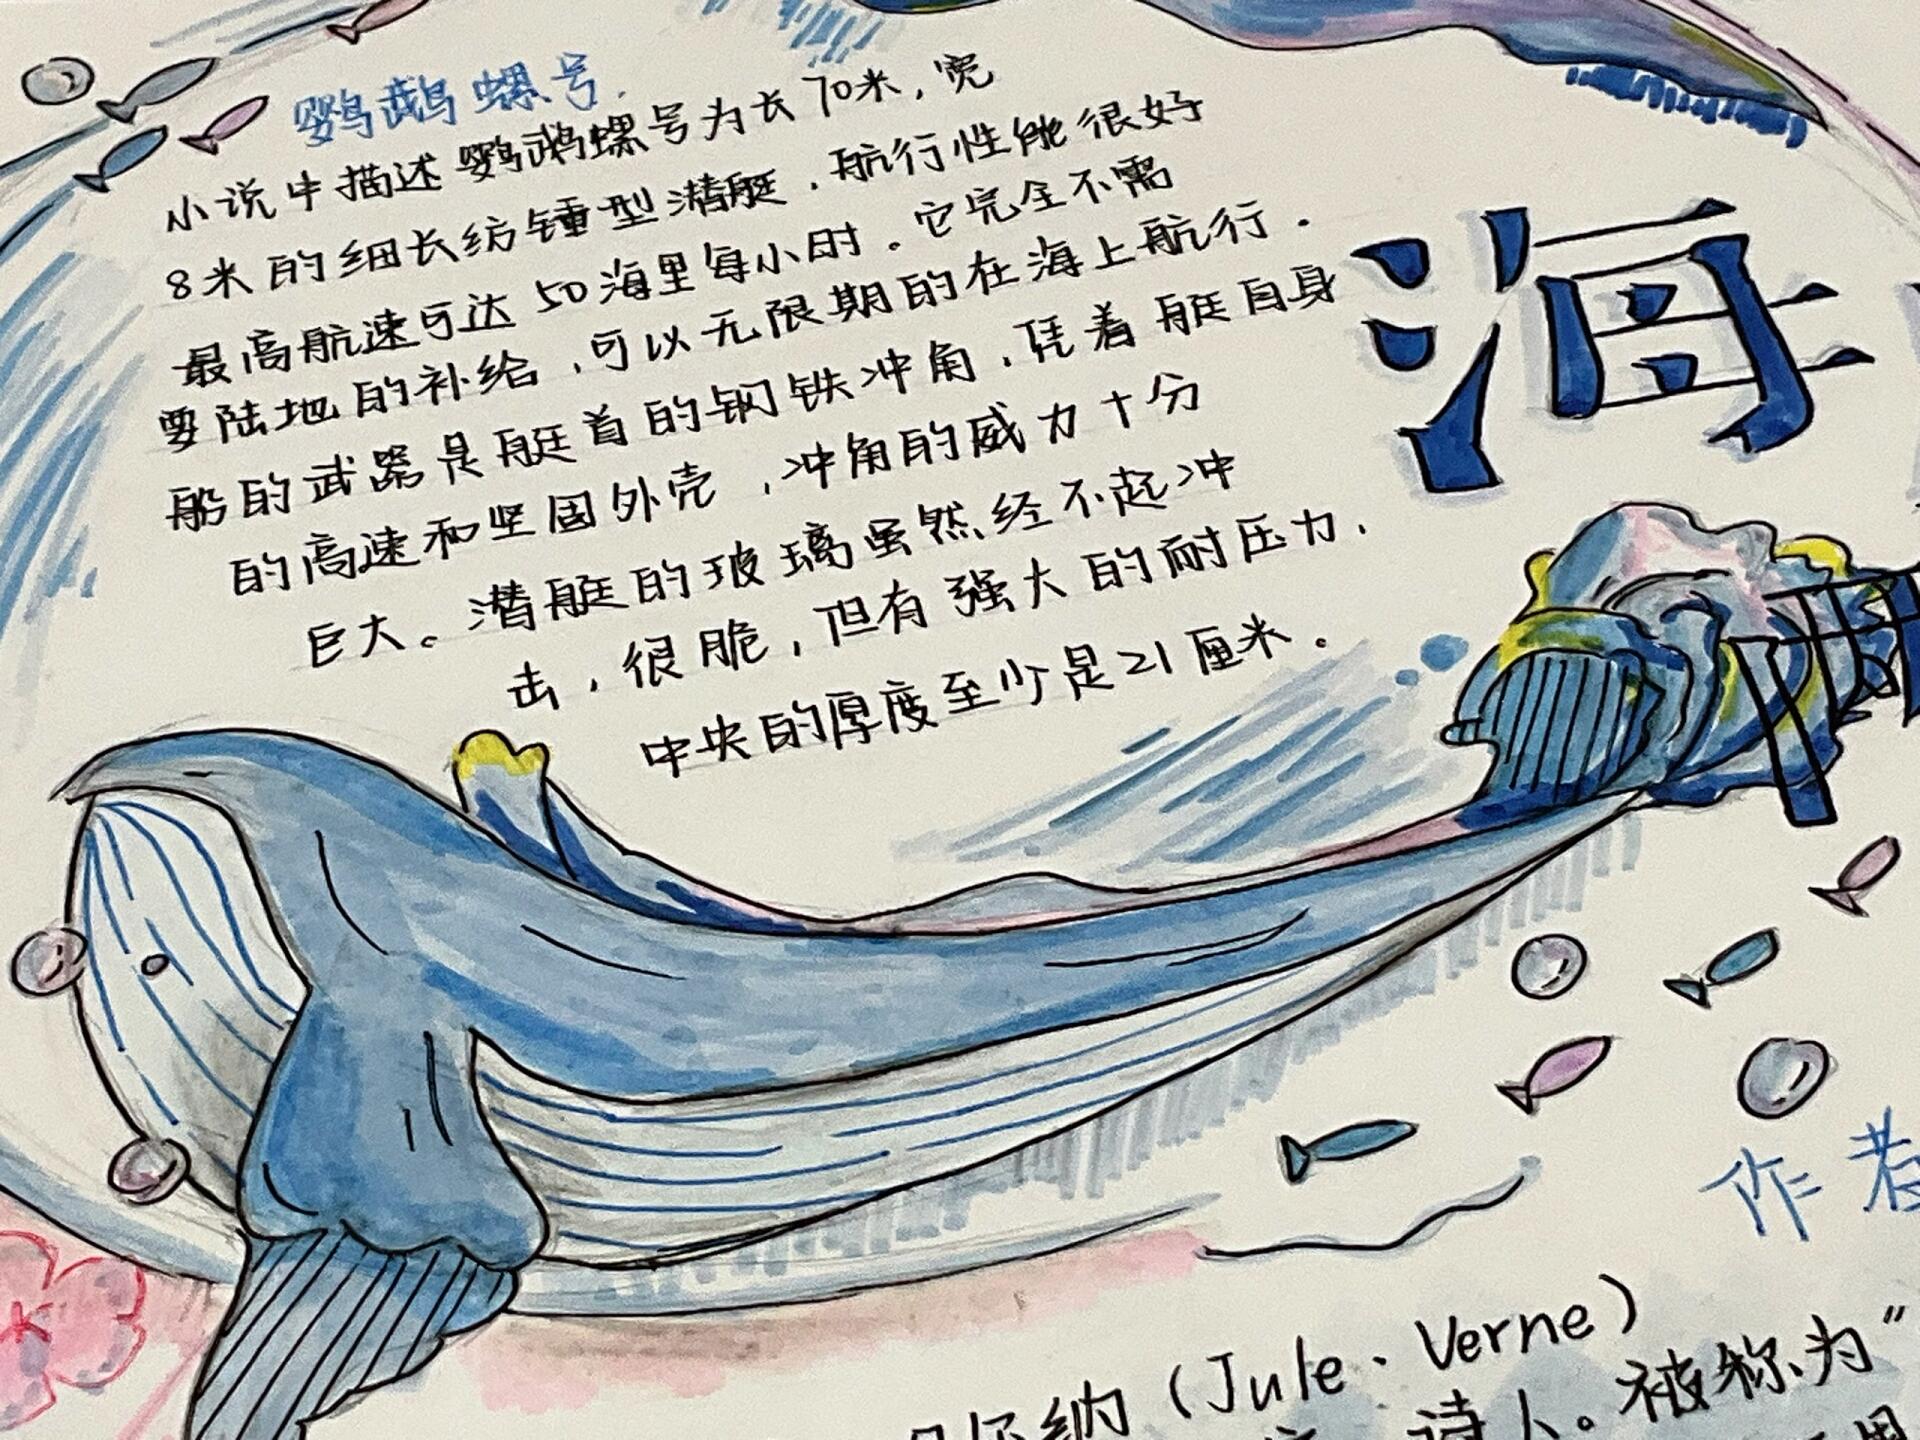 鹦鹉螺号.
小说中描述鹦鹉螺号为长70米，宽
8米的细长纺锤型潜艇，航行性能很好
最高航速可达50海里每小时。它完全不需
要陆地的补给，可以无限期的在海上航行.
船的武器是艇首的钢铁冲角，凭着艇自身
的高速和坚固外壳，冲角的威力十分
巨大。潜艇的玻璃虽然经不起冲
击，很脆，但有强大的耐压力，
中央的厚度至少是21厘米。
海
作者
尔纳（Jule·Verne）
诗人。被称为“